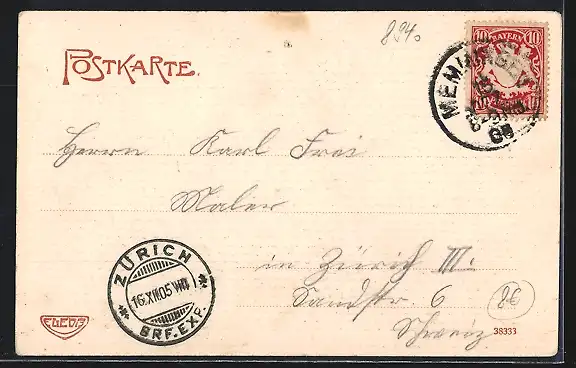 894.
POSTKARTE.
BAYERN
10 10
MEMMINGEN
Herrn Karl Frei
Maler
in Zürich III.
Sandstr 6
Schweiz
ZÜRICH
16.XII.05.VIII
BRF.EXP.
8€
38333